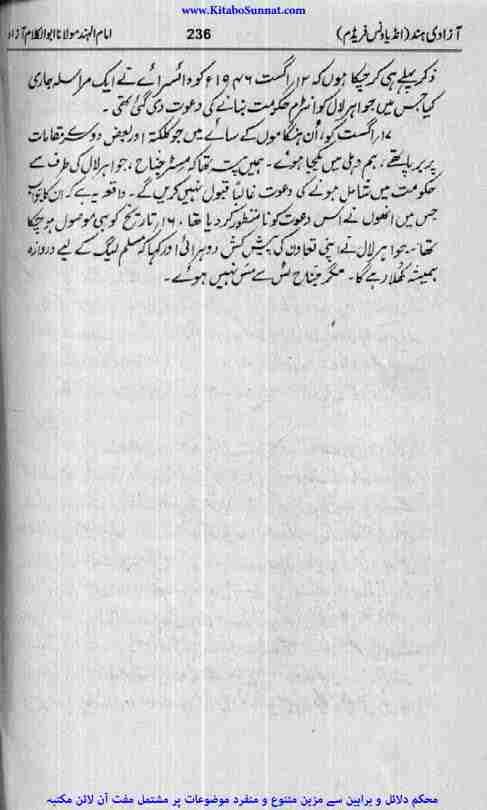 www.KitaboSunnat.com
آزادی ہند (انڈیا ونس فریڈم) 236 امام الہند مولانا ابوالکلام آزاد
ذکر پہلے ہی کر چکا ہوں کہ ۱۲ر اگست ۱۹۴۶ء کو وائسرائے نے ایک مراسلہ جاری
کیا جس میں جواہر لال کو انٹرم حکومت بنانے کی دعوت دی گئی تھی ۔
۱۷ر اگست کو، اُن ہنگاموں کے سائے میں جو کلکتہ اور بعض دوسکر مقامات
پر برپا تھے ، ہم دہلی میں یکجا ہوئے ۔ ہمیں پتہ تھا کہ مسٹر جناح ، جواہر لال کی طرف سے
حکومت میں شامل ہونے کی دعوت غالباً قبول نہیں کریں گے ۔ واقعہ یہ ہے کہ ان کا جواب
جس میں انھوں نے اس دعوت کو نامنظور کر دیا تھا ، ۱۶ر تاریخ کو ہی موصول ہو چکا
تھا ۔ جواہر لال نے اپنی تعاون کی پیش کش دوہرائی اور کہا کہ مسلم لیگ کے لیے دروازہ
ہمیشہ کھلا رہے گا ۔ مگر جناح ٹس سے مس نہیں ہوئے ۔
محکم دلائل و براہین سے مزین متنوع و منفرد موضوعات پر مشتمل مفت آن لائن مکتبہ